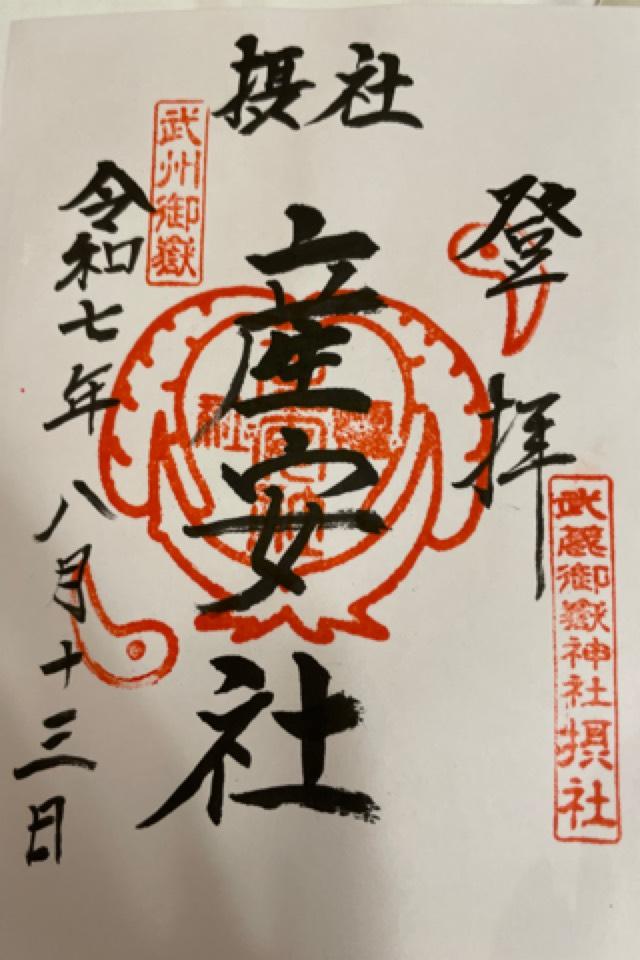 摂社
登拝
武蔵御嶽神社摂社
産安社
武州御嶽
令和七年八月十三日